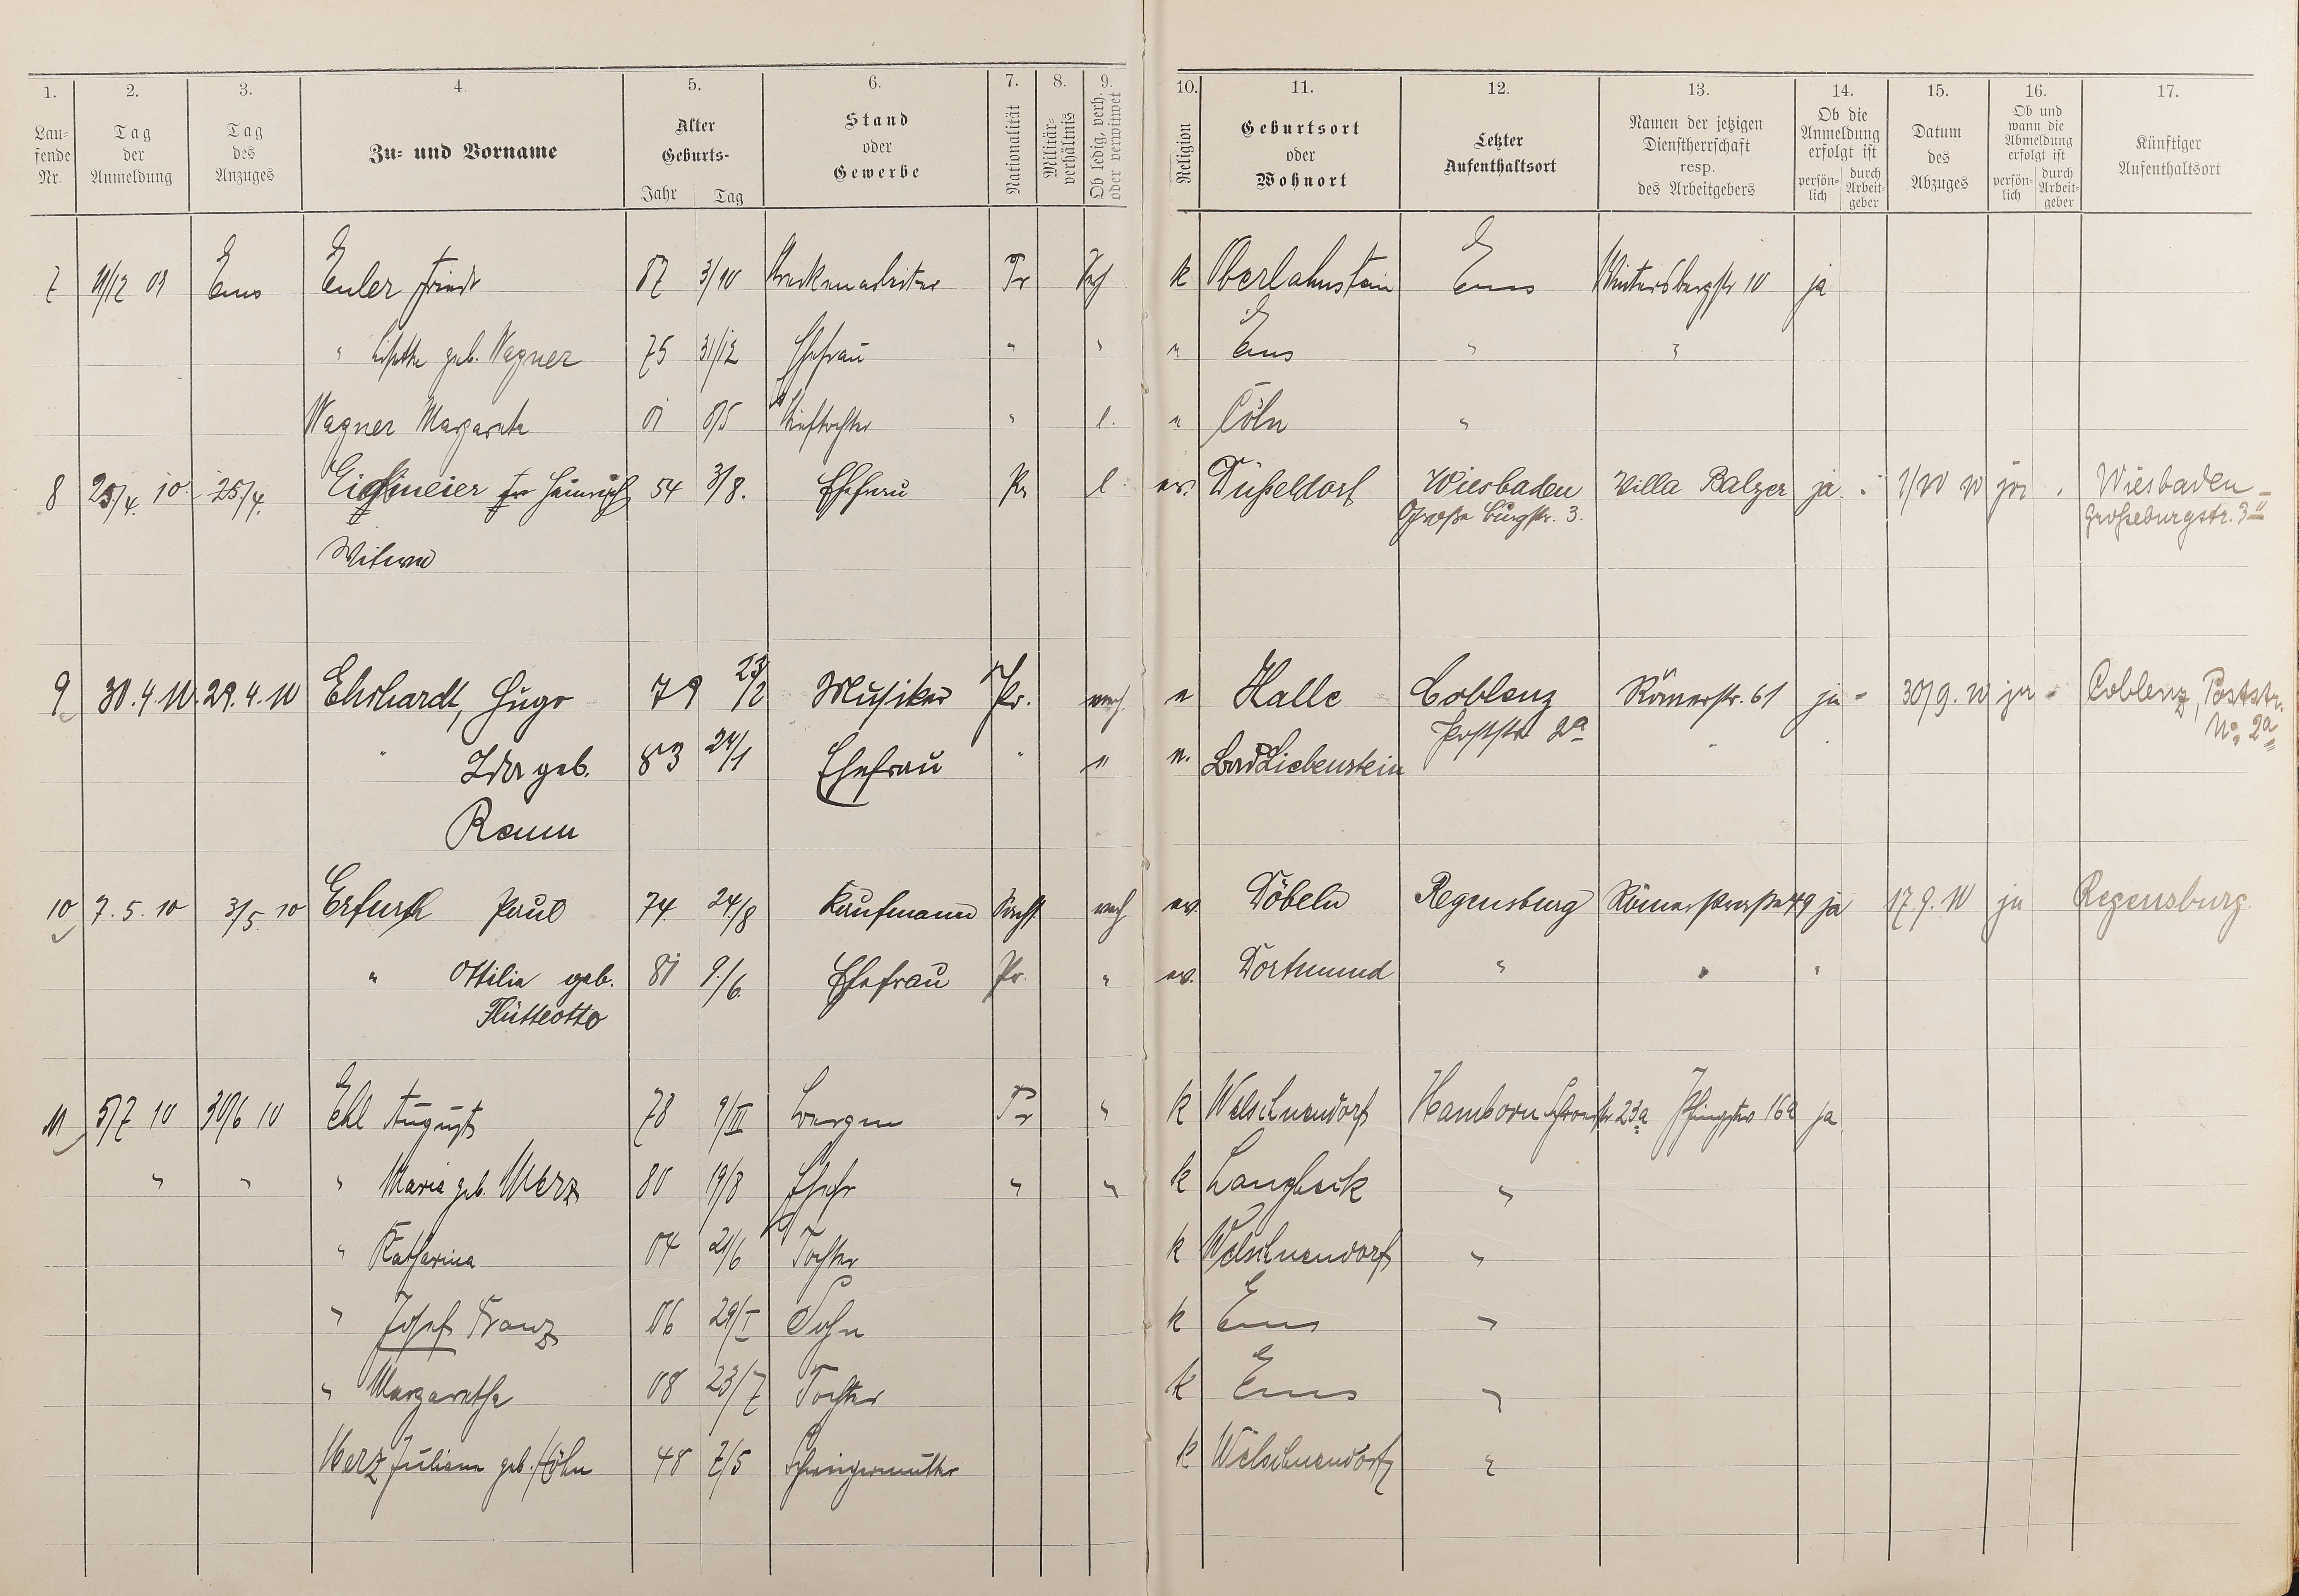 1. 2. 3. 4. 5. 6. 7. 8. 9. 10. 11. 12. 13. 14. 15. 16. 17.
Lau-
fende
Nr.
Tag
der
Anmeldung
Tag
des
Anzuges
Zu- und Vorname
Alter
Geburts-
Jahr Tag
Stand
oder
Gewerbe
Nationalität
Militär-
verhältnis
Ob ledig, verh.
oder verwitwet
Religion
Geburtsort
oder
Wohnort
Letzter
Aufenthaltsort
Namen der jetzigen
Dienstherrschaft
resp.
des Arbeitgebers
Ob die
Anmeldung
erfolgt ist
persön-
lich
durch
Arbeit-
geber
Datum
des
Abzuges
Ob und
wann die
Abmeldung
erfolgt ist
persön-
lich
durch
Arbeit-
geber
Künftiger
Aufenthaltsort
7 11/12 09 Ems Euler Friedr 87 3/10 Pr k Oberlahnstein Ems Wintersbergstr 10 ja
" geb. Wagner 75 31/12 Ehefrau " " " Ems " "
Wagner Margareta 01 Stieftochter " l. " Cöln "
8 25/4. 10. 25/4. Heinrich 54 3/8. Ehefrau Pr l. ev. Düßeldorf Wiesbaden Villa Balzer ja Wiesbaden
Große Burgstr. 3. Großeburgstr. 3II
Witwe
9 30.4.10. 29.4.10 Ehrhardt, Hugo 79 23/2 Musiker Pr. verh. " Halle Coblenz Römerstr. 61 ja - 30/9. 10 ja - Coblenz, Poststr.
Poststr 2a No. 2a
" Ida geb. 83 24/1 Ehefrau " " " Bad Liebenstein
Ramm
10 7.5.10 3/5.10 Erfurth Paul 74. 24/8 Kaufmann verh ev. Döbeln Regensburg Römerstraße 49 ja 17.9.10 ja Regensburg.
" Ottilie geb. 81 9./6. Ehefrau Pr. " ev. Dortmund " " "
Flütteotto
11 5/7 10 30/6 10 Ehl August 78 9/III Bergm Pr " k Welschneudorf Hamborn 23a Pfingstw 16a ja
" " " Maria geb. Merz 80 19/8 Ehefr " " k "
" Katharina 04 21/6 Tochter k Welschneudorf "
" Josef Franz 06 29/I Sohn k Ems "
" Margaretha 08 23/7 Tochter k Ems "
Merz Juliana geb. Höhn 48 7/5 Schwiegermutter k Welschneudorf "